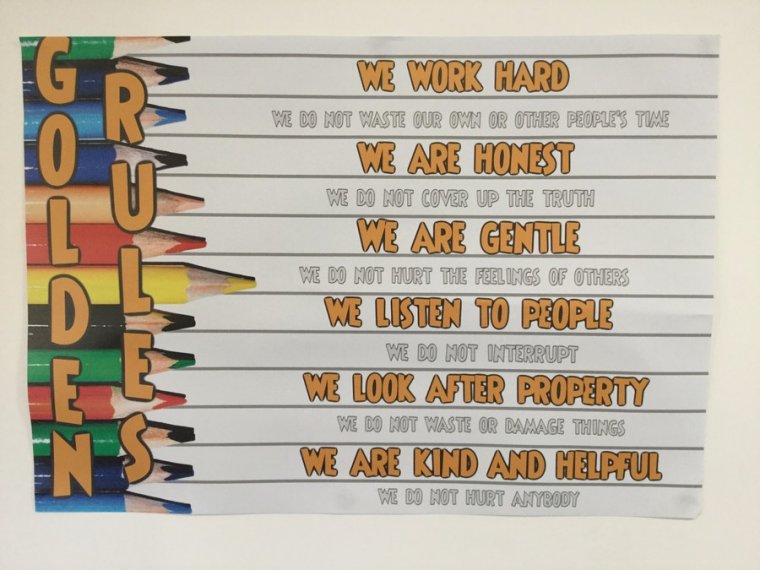 GOLDEN
RULES
WE WORK HARD
WE DO NOT WASTE OUR OWN OR OTHER PEOPLE'S TIME
WE ARE HONEST
WE DO NOT COVER UP THE TRUTH
WE ARE GENTLE
WE DO NOT HURT THE FEELINGS OF OTHERS
WE LISTEN TO PEOPLE
WE DO NOT INTERRUPT
WE LOOK AFTER PROPERTY
WE DO NOT WASTE OR DAMAGE THINGS
WE ARE KIND AND HELPFUL
WE DO NOT HURT ANYBODY